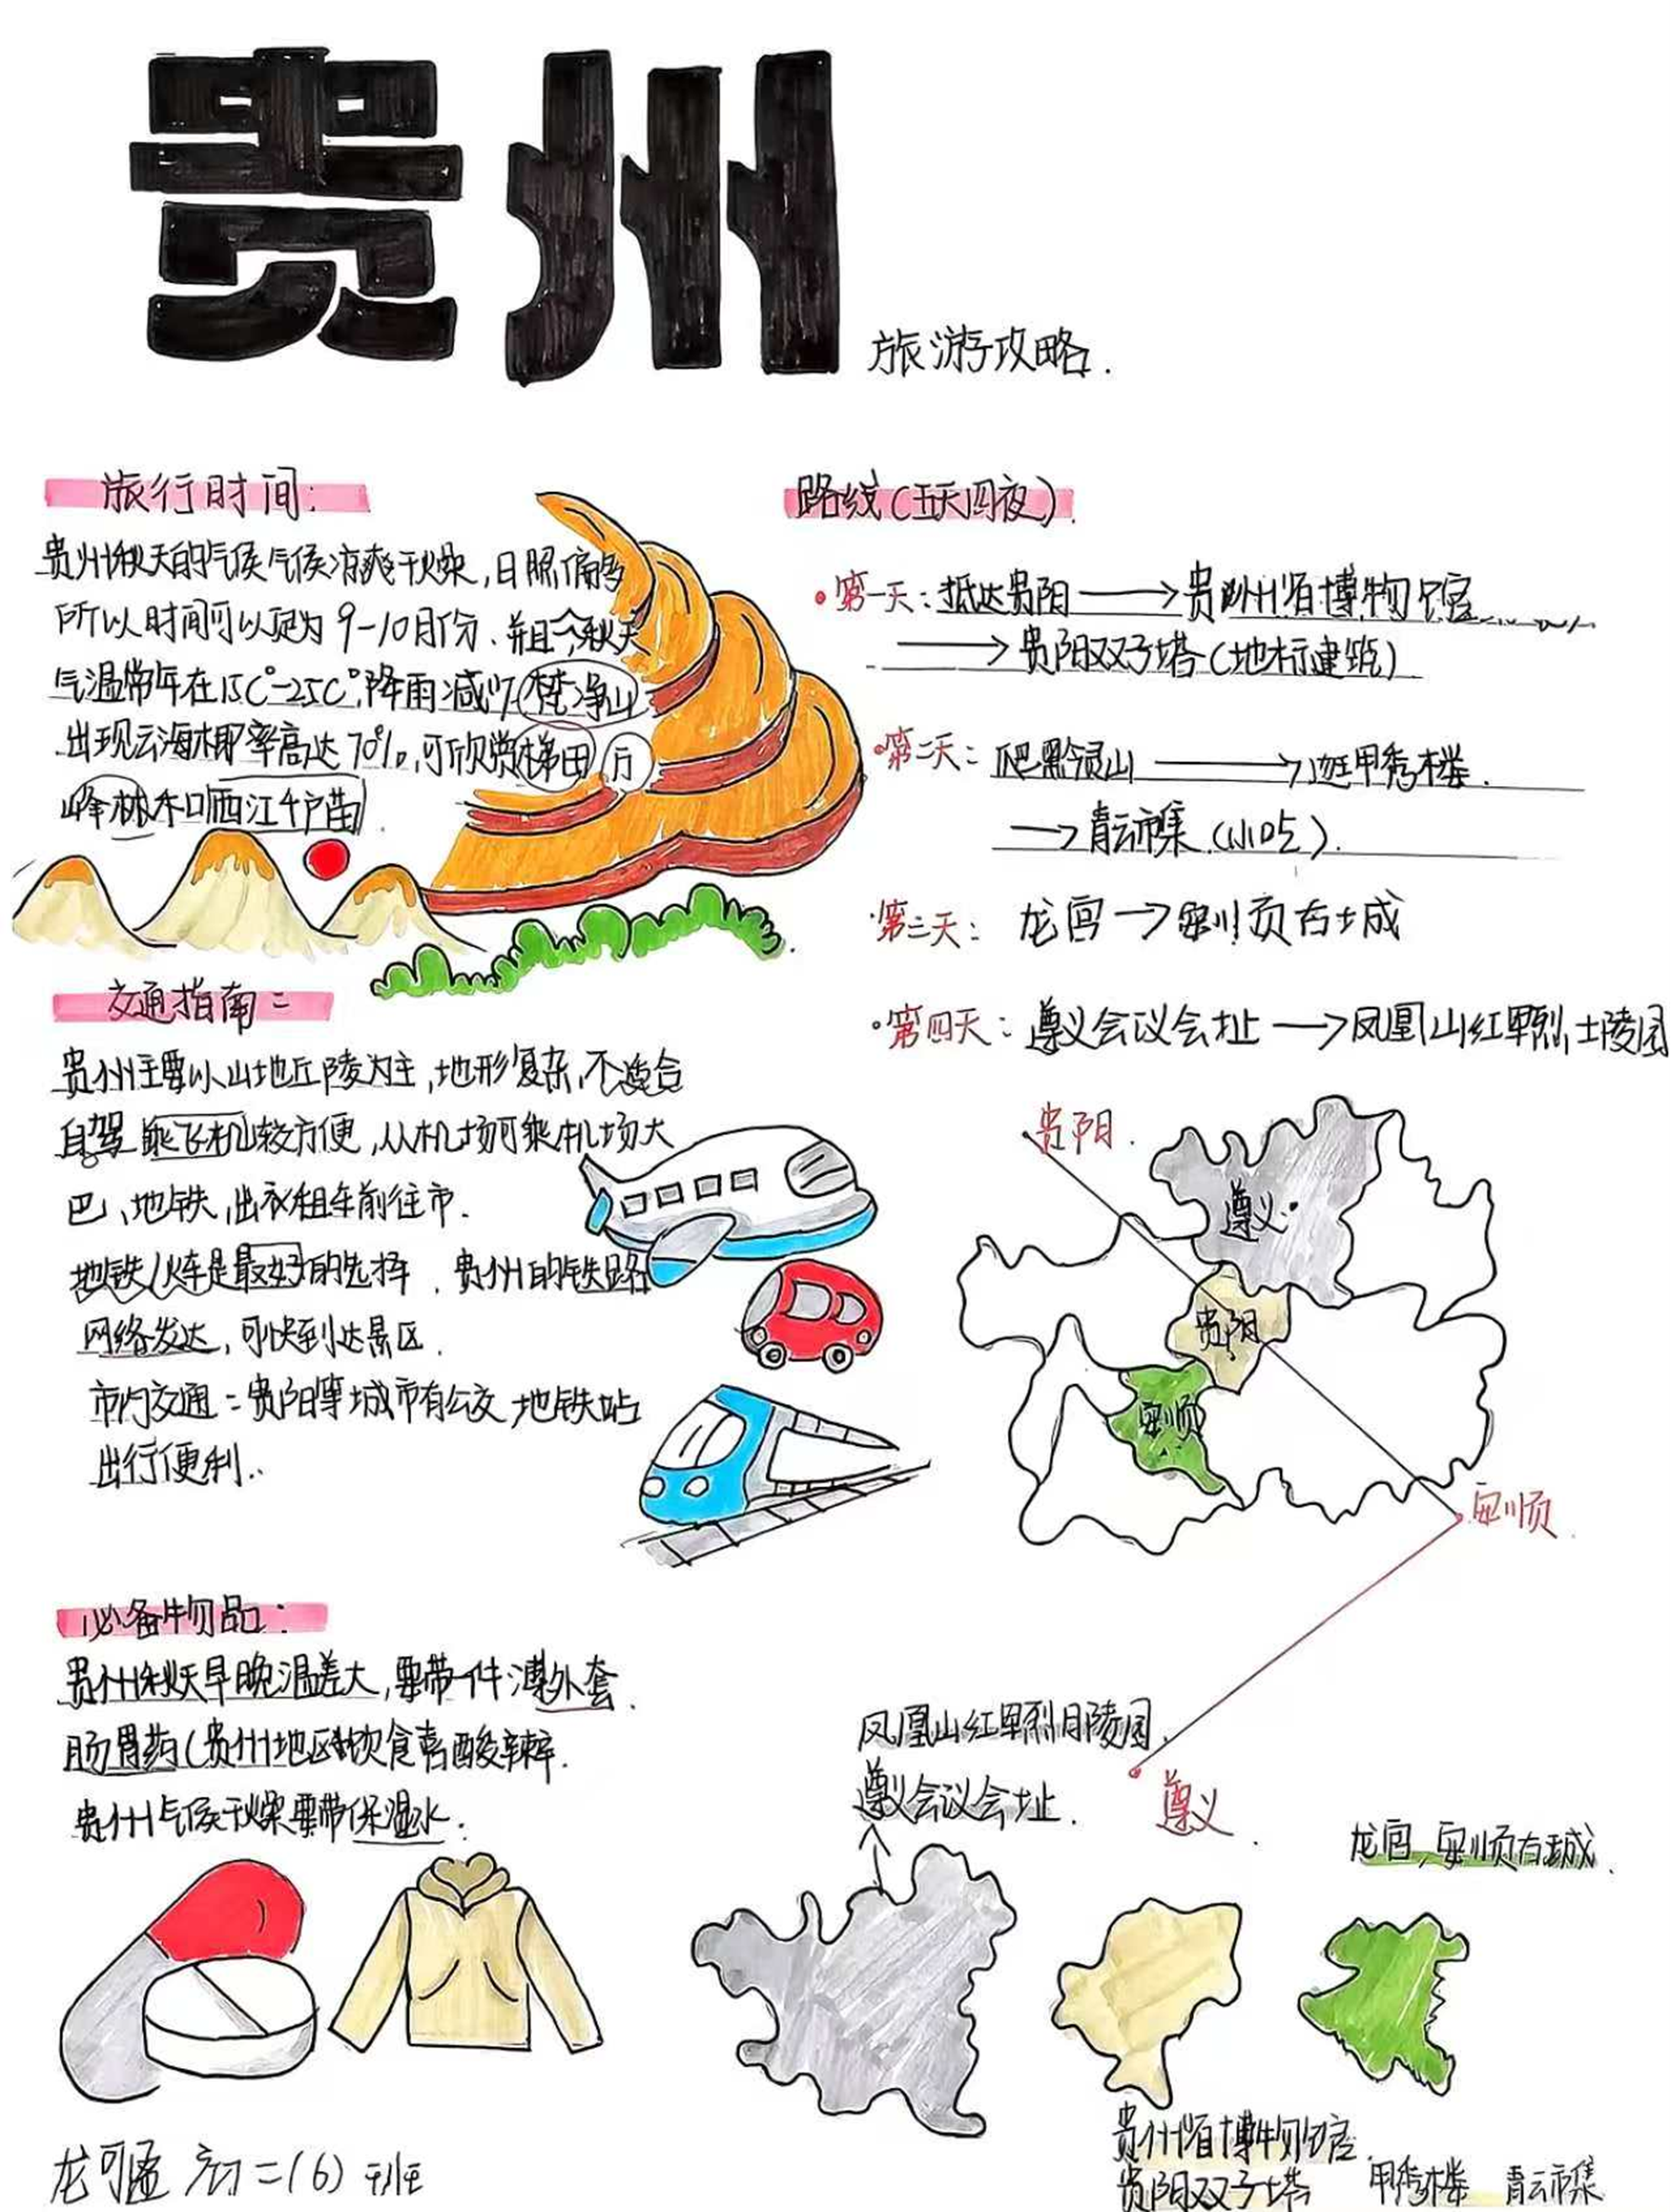 贵州
旅游攻略.
旅行时间:
贵州秋天的气候气候凉爽干燥,日照偏多
所以时间可以定为9-10月份.并且
气温常年在15C°-25C°,降雨减少,梵净山
出现云海概率高达70%,可欣赏梯田万
峰林和西江千户苗
交通指南:
贵州主要以山地丘陵为主,地形复杂,不适合
自驾 乘飞机比较方便,从机场可乘机场大
巴、地铁,出租车前往市.
地铁/火车是最好的选择.贵州的铁路
网络发达,可快到达景区.
市内交通:贵阳等城市有公交,地铁站
出行便利..
必备物品:
贵州秋天早晚温差大,要带一件薄外套.
肠胃药(贵州地区饮食喜酸辣.
贵州气候干燥要带保湿水.
龙可 初二(6)班
路线(五天四夜).
第一天:抵达贵阳→贵州省博物馆
→贵阳双子塔(地标建筑)
第二天:爬黔灵山→逛甲秀楼.
→青云市集(小吃).
第三天: 龙宫→安顺古城
第四天:遵义会议会址→凤凰山红军烈士陵园
贵阳.
遵义
贵阳
安顺
安顺.
凤凰山红军烈士陵园.
遵义会议会址.
遵义.
龙宫,安顺古城.
贵州省博物馆
贵阳双子塔 甲秀楼 青云市集